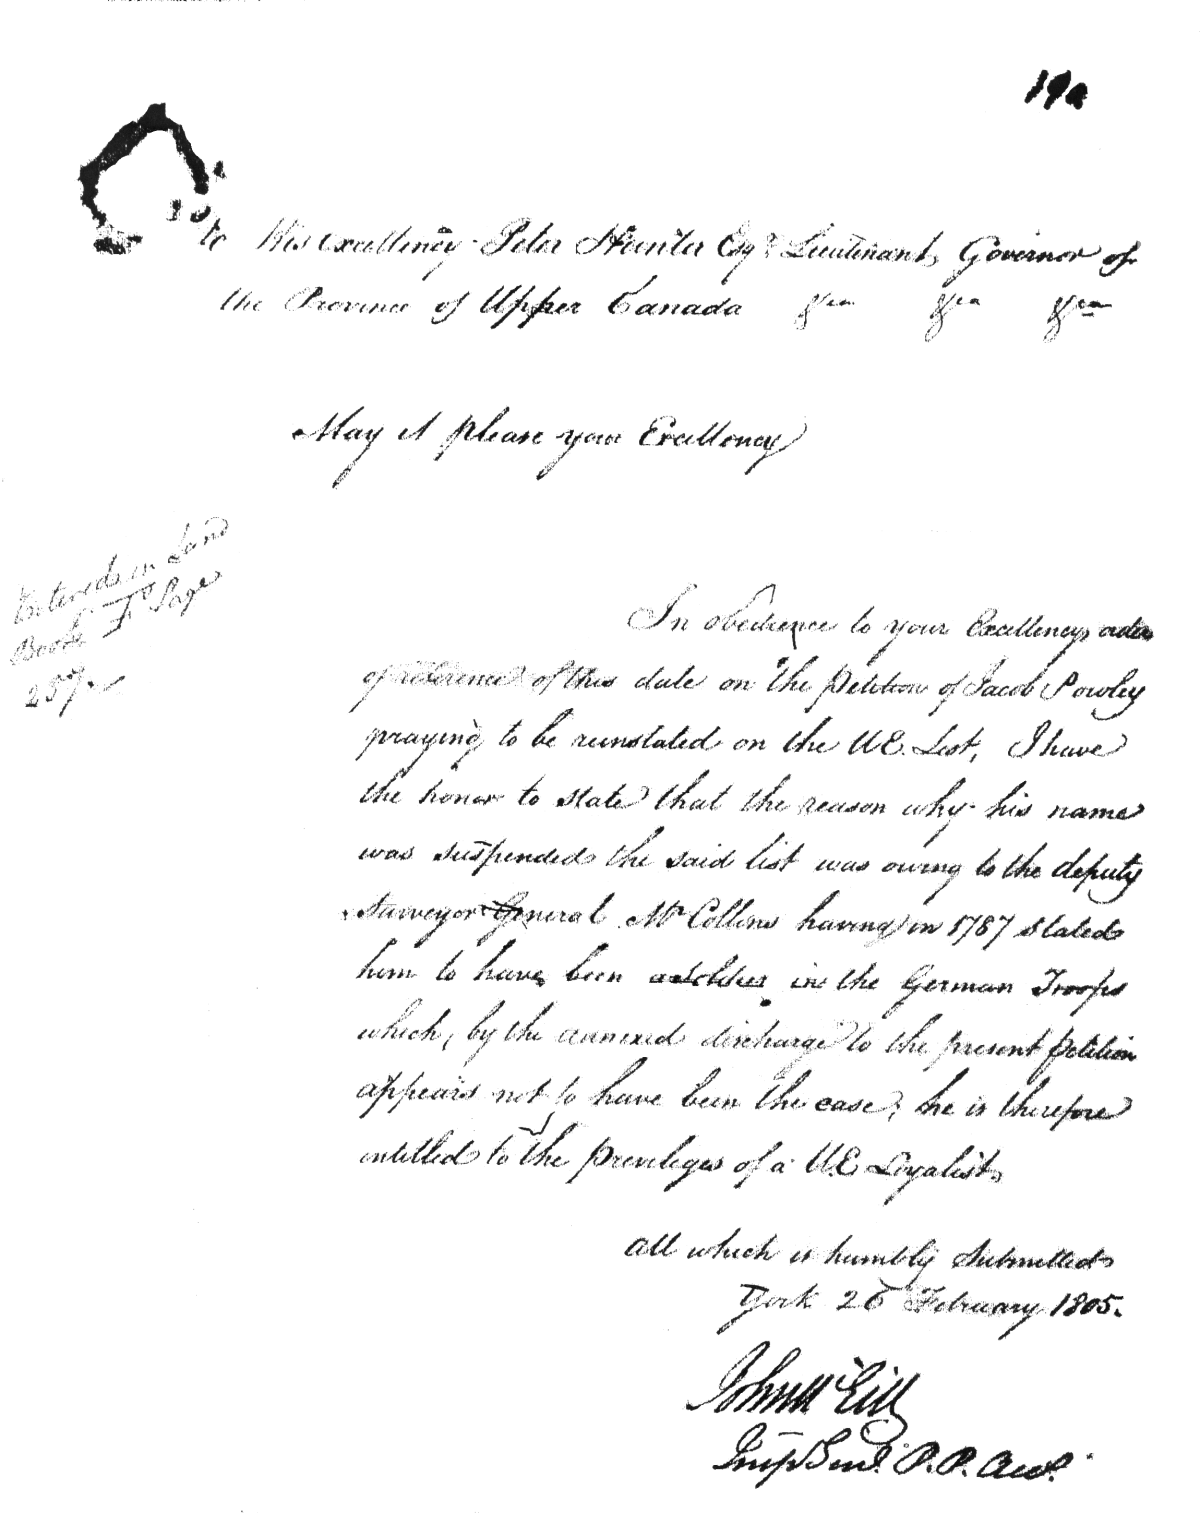 19a
To His Excellency Peter Hunter Esqr Lieutenant Governor of
the Province of Upper Canada &ca &ca &ca
May it please your Excellency
Entered in Land
Book F Page
257.
In obedience to your Excellencys order
of reference of this date on the petition of Jacob Powley
praying to be reinstated on the U.E. List, I have
the honor to state that the reason why his name
was suspended the said list was owing to the deputy
Surveyor General Mr Collins having in 1787 stated
him to have been a soldier in the German Troops
which, by the annexed discharge to the present petition
appears not to have been the case; he is therefore
intitled to the privileges of a U.E Loyalist,
All which is humbly Submitted
York 26 February 1805.
John McGill
Insp Genl. P.P. Acct.